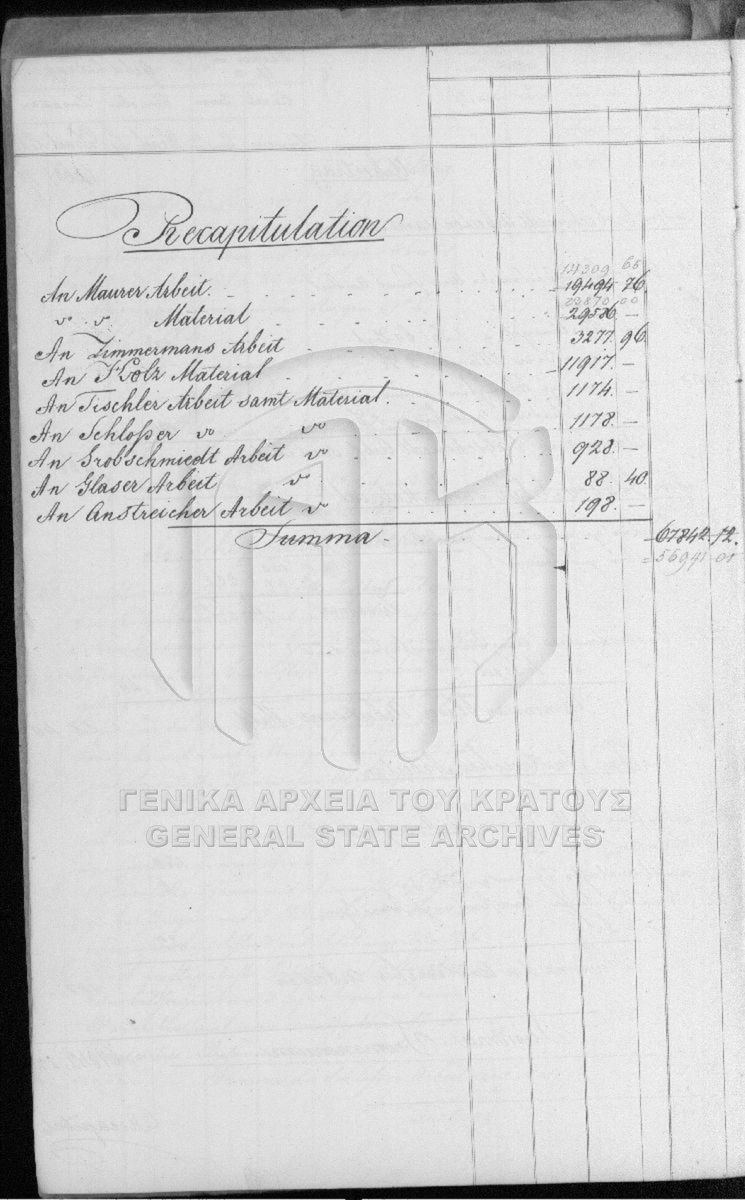 Recapitulation
14309 65
An Maurer Arbeit. 19494 76.
23870 00
" " Material 29586 —
An Zimmermans Arbeit 3277. 96.
An Holz Material 11917. —
An Tischler Arbeit samt Material. 1174. —
An Schloßer " " 1178. —
An Grobschmiedt Arbeit " 928. —
An Glaser Arbeit " 88. 40.
An Anstreicher Arbeit " 198. —
Summa 67842 12.
56941 01
ΓΕΝΙΚΑ ΑΡΧΕΙΑ ΤΟΥ ΚΡΑΤΟΥΣ
GENERAL STATE ARCHIVES